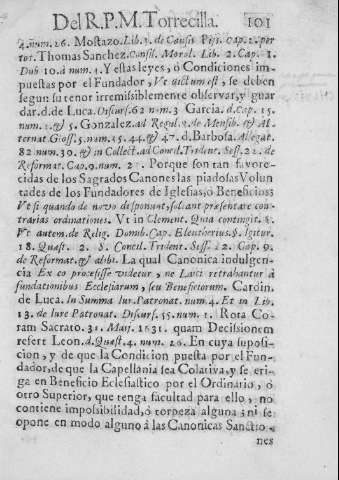 Del R.P.M. Torrecilla. 101
4. num. 26. Mostazo. Lib. 3. de Causis Pijs. cap. 2. per
tot. Thomas Sanchez. Consil. Moral. Lib. 2. Cap. 1.
Dub 10. á num. 1. Y estas leyes, ó Condiciones im-
puestas por el Fundador, Ut dictum est, se deben
segun su tenor irremissiblemente observar, y guar
dar. d. de Luca. Discurs. 62 num. 3 Garcia. d. Cap. 15.
num. 1. & 5. Gonzalez. ad Regul. 8. de Mensib. & Al-
ternat. Gloss. 5. num. 15. 44. & 47. d. Barbosa. Allegat.
82 num. 30. & in Collect. ad Concil. Trident. Sess. 22. de
Reformat. Cap. 9. num. 2. Porque son tan favore-
cidas de los Sagrados Canones las piadosas Volun
tades de los Fundadores de Iglesias, ó Beneficios:
Ut si quando de novo disponunt, soleant præsentare con-
trarias ordinationes. Ut in Clement. Quia contingit. §.
Ut autem. de Relig. Domib. Cap. Eleutherius. §. Igitur.
18. Quæst. 2. & Concil. Trident. Sess. 22 Cap. 9.
de Reformat. & alibi. La qual Canonica indulgen-
cia Ex eo processisse videtur, ne Laici retrahantur à
fundationibus Ecclesiarum, seu Beneficiorum. Cardin.
de Luca. In Summa Iur. Patronat. num. 4. Et in Lib.
13. de Iure Patronat. Discurs. 55. num. 1. Rota Co-
ram Sacrato. 31. Maij. 1631. quam Decissionem
refert Leon. d. Quæst. 4. num. 26. En cuya suposi-
cion, y de que la Condicion puesta por el Fun-
dador, de que la Capellania sea Colativa, y se eri-
ga en Beneficio Eclesiastico por el Ordinario, ó
otro Superior, que tenga facultad para ello, no
contiene impossibilidad, ó torpeza alguna; ni se
opone en modo alguno á las Canonicas Sanctio-
nes